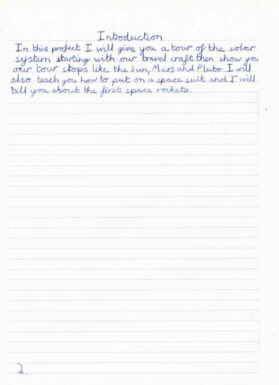 Introduction
In this project I will give you a tour of the solar
system starting with our travel craft then show you
our tour stops like the Sun, Mars and Pluto. I will
also teach you how to put on a space suit and I will
tell you about the first space rockets.
2